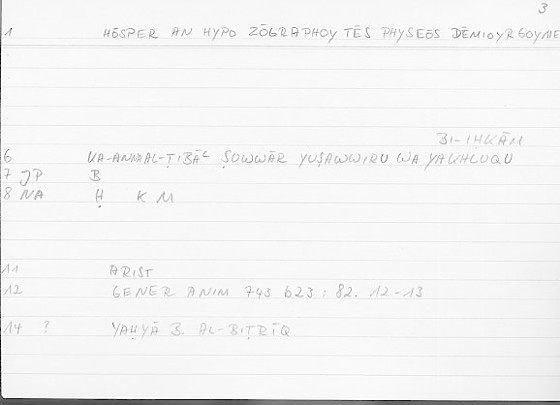 3
1 HŌSPER AN HYPO ZŌGRAPHOY TĒS PHYSEŌS DĒMIOYRGOYME
BI-IḤKĀM
6 KA-ANNA AL-ṬIBĀʿ ṢUWWĀR YUṢAWWIRU WA YAKHLUQU
7 JP B
8 NA Ḥ K M
11 ARIST
12 GENER ANIM 743 b23 : 82. 12-13
14 ? YAḤYĀ B. AL-BIṬRĪQ